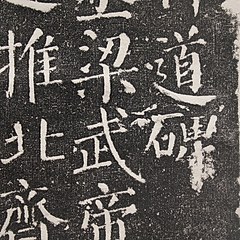 道碑
梁武帝
推北齊